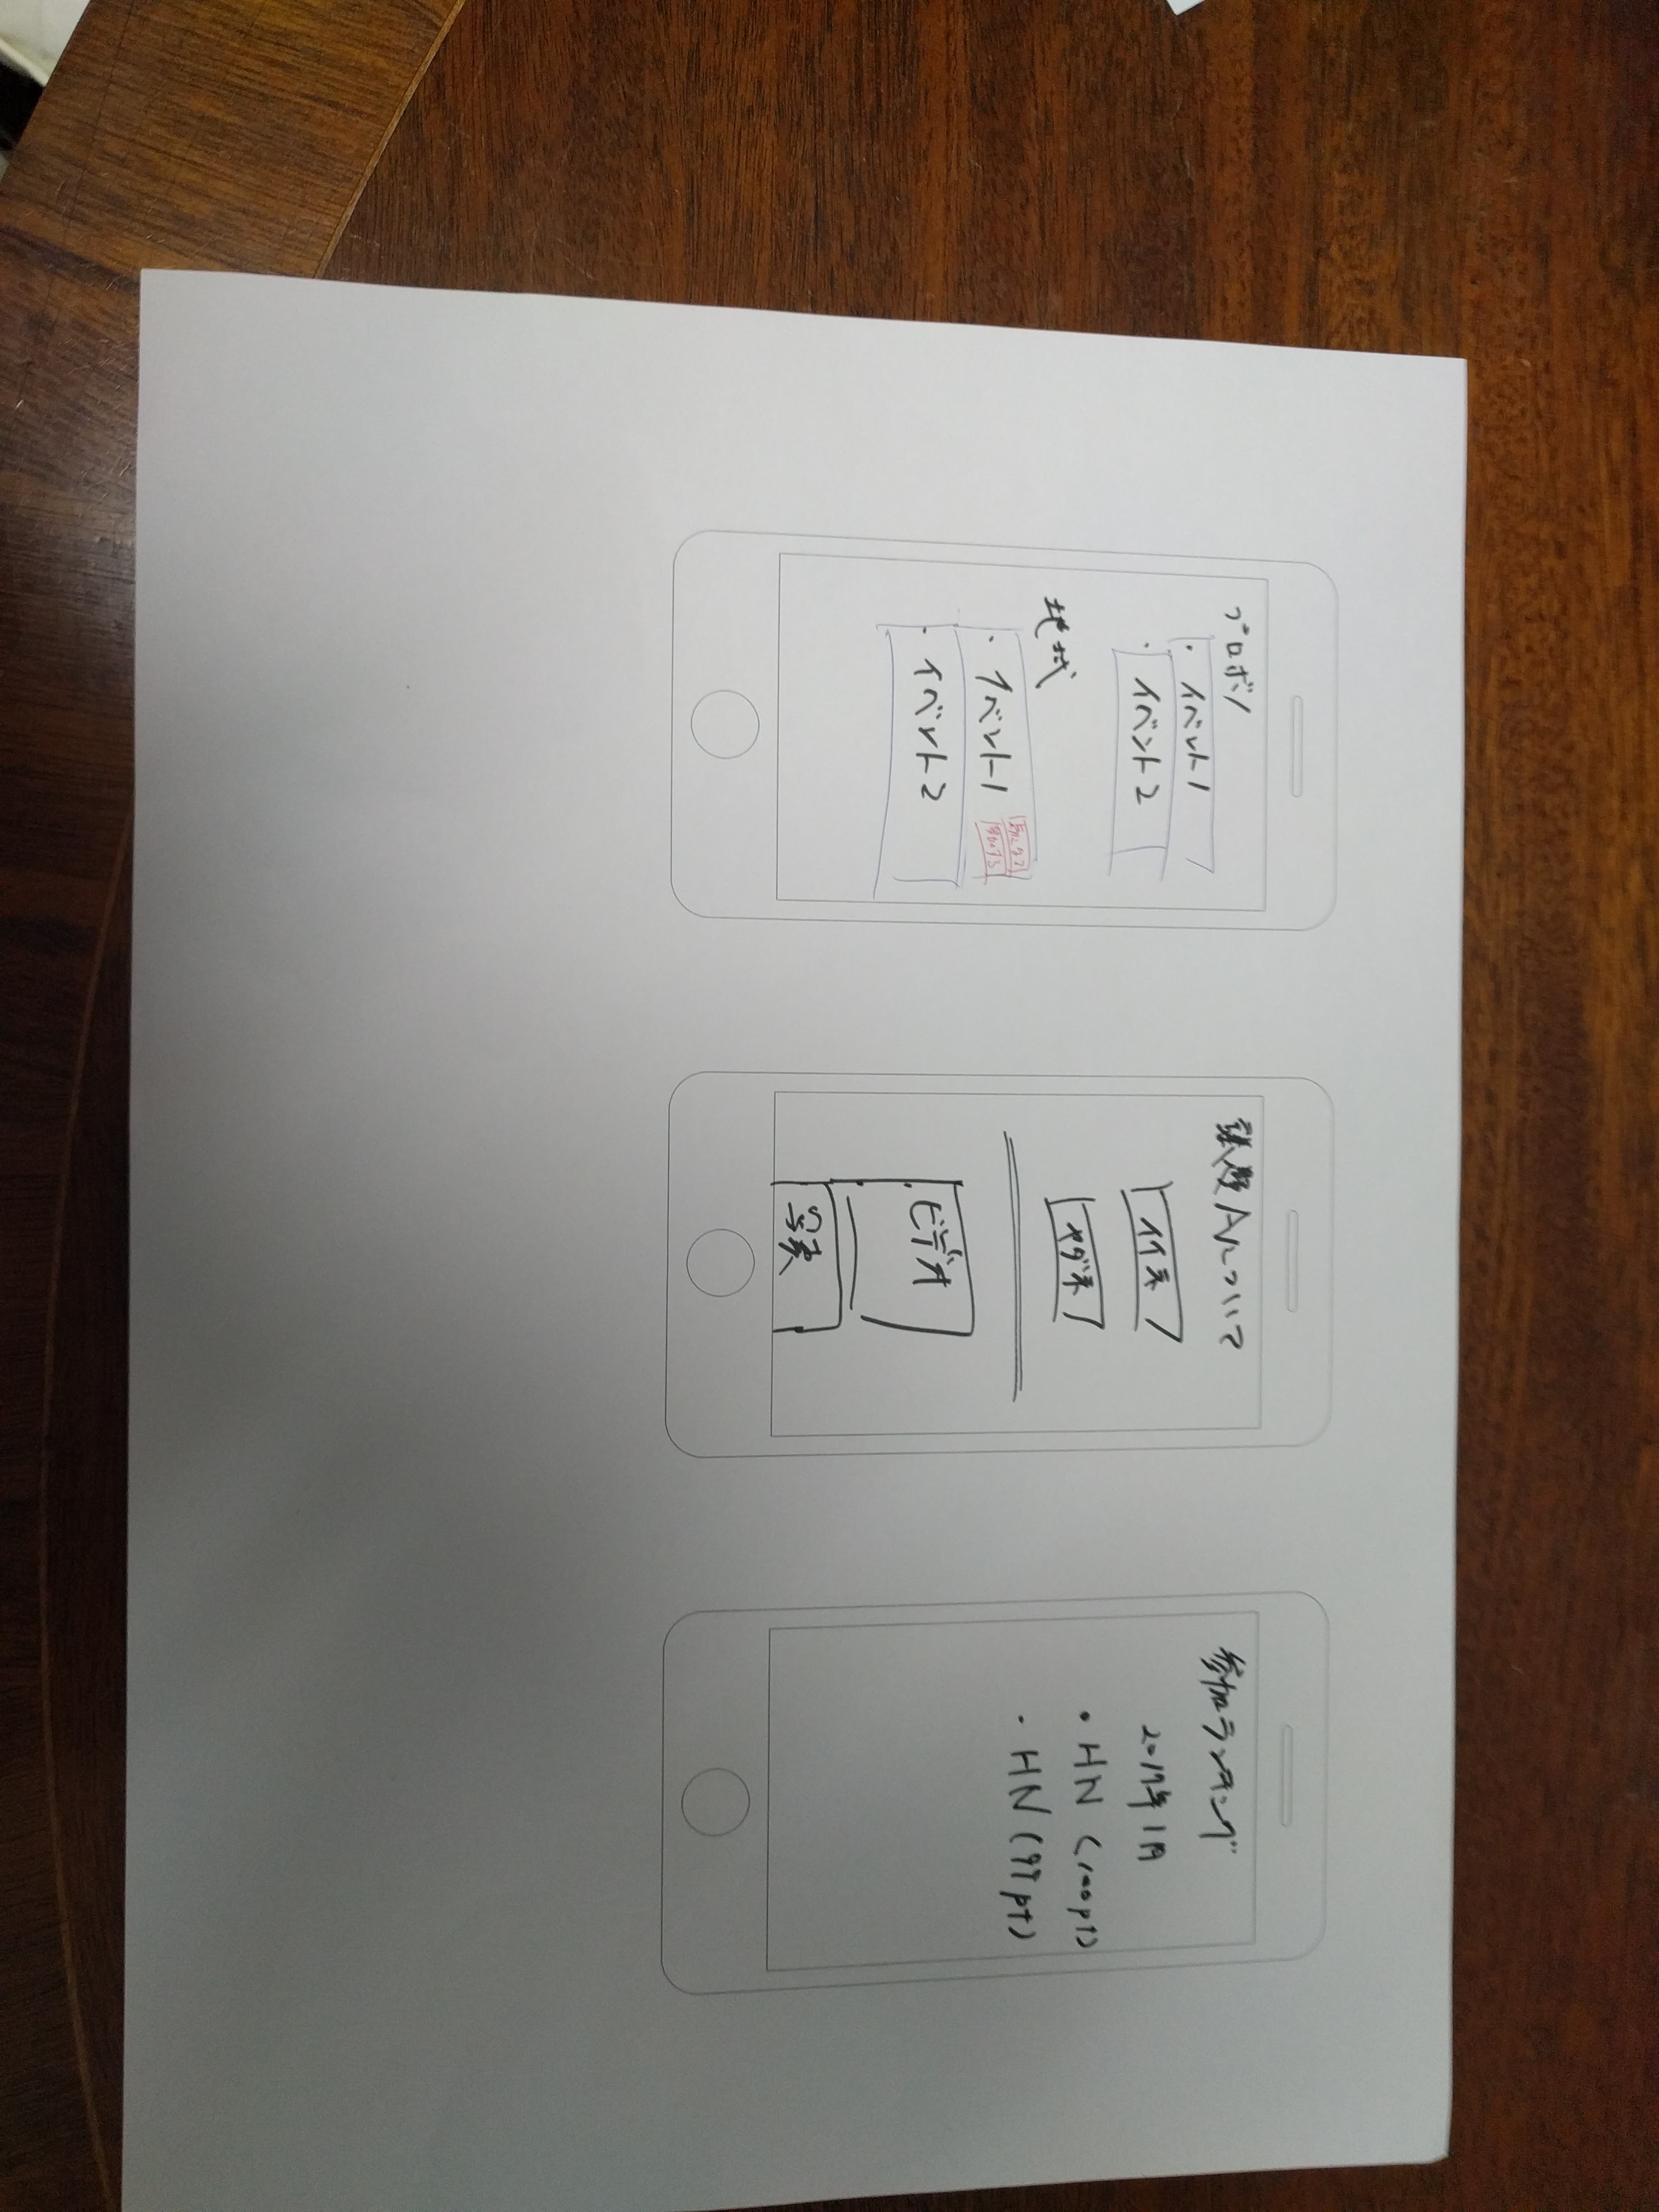 プロボノ
・イベント1
・イベント2
地域
・イベント1
・イベント2
議題Aについて
イイネ
ヤダネ
ビデオ
参加ランキング
2017年1月
・HN (100pt)
・HN (99pt)